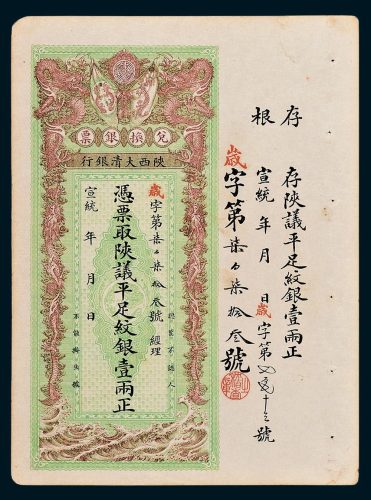 存根
存陝議平足紋銀壹兩正
宣統 年 月 日歲字第 十三號
歲字第柒百柒拾叁號
兌換銀票
陝西大清銀行
歲字第柒百柒拾叁號 經理
憑票取陝議平足紋銀壹兩正
宣統 年 月 日
認票不認人